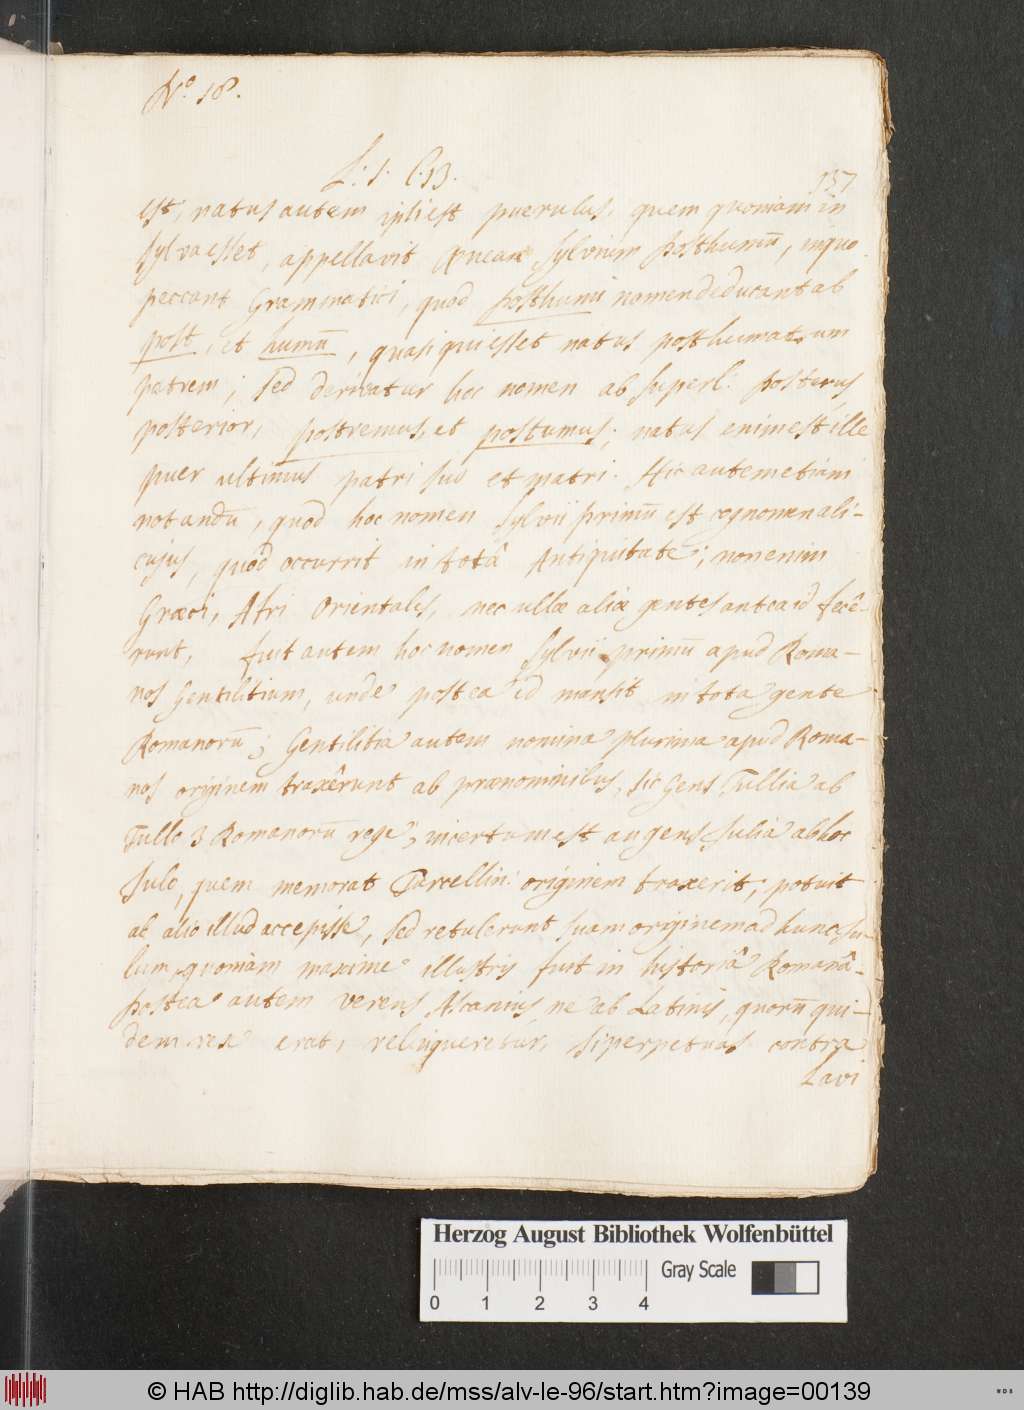 N.º 18.
L: 1. C:13.
137
est, natus autem ipsi est puerulus, quem quoniam in
sylva esset, appellavit Æneam Sylvium Posthumū, in quo
peccant Grammatici, quod posthumi nomen deducant ab
post, et humū, quasi qui esset natus post humatum
patrem; sed derivatur hoc nomen ab superl. posterus,
posterior, postremus, et postumus; natus enim est ille
puer ultimus patri suo et matri. Hic autem etiam
notandū, quod hoc nomen Sylvii primū est cognomen ali-
cujus, quod occurrit in totâ Antiquitate; non enim
Græci, Afri Orientales, nec ullæ aliæ gentes antea id fecê-
runt, fuit autem hoc nomen Sylvii primū apud Roma-
nos Gentilitium, unde postea id mansit in tota gente
Romanorū; Gentilitia autem nomina plurima apud Roma-
nos originem traxêrunt ab prænominibus, sic Gens Tullia ab
Tullo 3 Romanorū rege; incertum est an gens Julia ab hoc
Julo, quem memorat originem traxerit; potuit
ab alio illud accepisse, sed retulerunt suam originem ad hunc Ju-
lum, quoniam maxime illustris fuit in historiâ Romanâ.
Postea autem verens Ascanius, ne ab Latinis, quorū qui-
dem rex erat, relinqueretur, si perpetuas contra
Lavi
Herzog August Bibliothek Wolfenbüttel
0 1 2 3 4
Gray Scale
© HAB http://diglib.hab.de/mss/alv-le-96/start.htm?image=00139